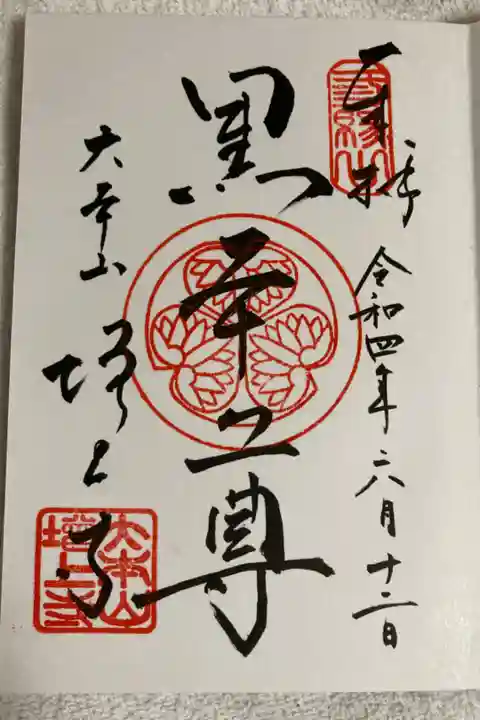 奉拝
令和四年六月十二日
三縁山
黒本尊
大本山
増上寺
大本山
増上寺